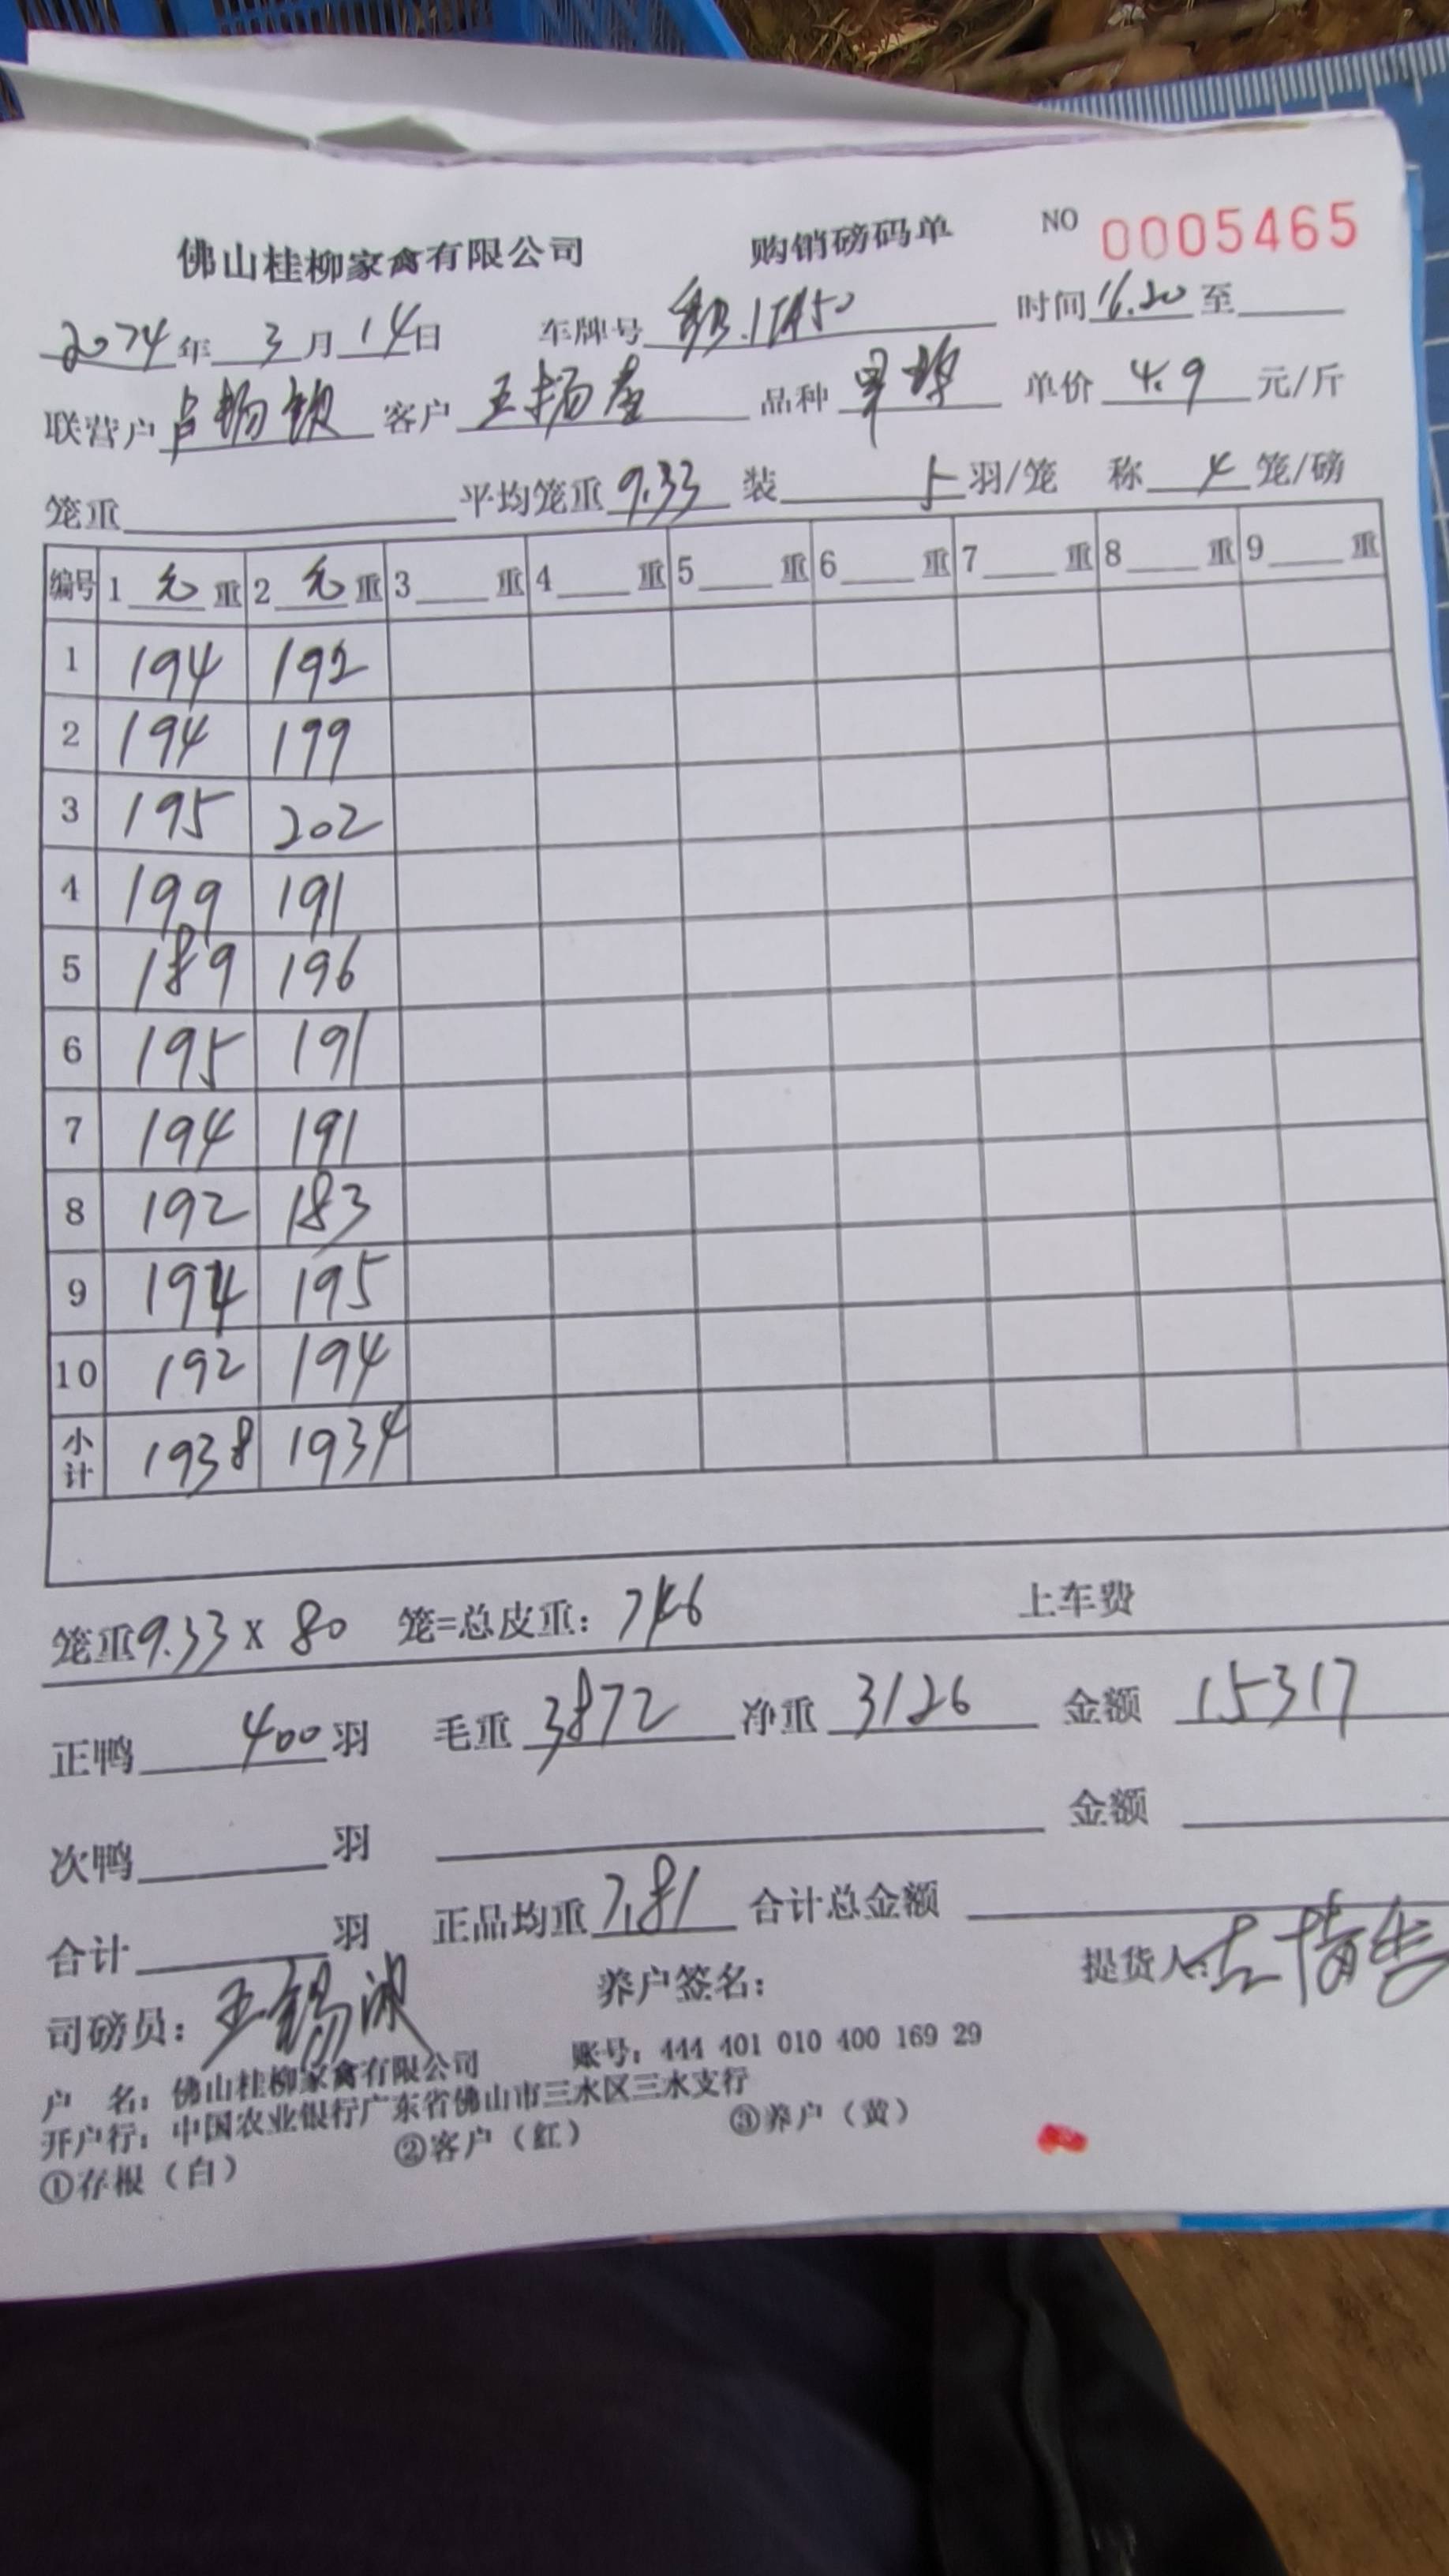 佛山桂柳家禽有限公司 购销磅码单 NO 0005465
2024年 3月14日 车牌号 时间16.20至
联营户 客户 王扬 品种 单价 4.9 元/斤
笼重 平均笼重9.33 装 5羽/笼 称 4 笼/磅
编号 1 毛 重 2 毛 重 3 重 4 重 5 重 6 重 7 重 8 重 9 重
1 194 192
2 194 199
3 195 202
4 199 191
5 189 196
6 195 191
7 194 191
8 192 183
9 194 195
10 192 194
小计 1938 1934
笼重9.33 x 80 笼=总皮重:746 上车费
正鸭 400羽 毛重 3872 净重 3126 金额 15317
次鸭 羽 金额
合计 羽 正品均重7.81 合计总金额
司磅员: 王锡 养户签名: 提货人:
户 名:佛山桂柳家禽有限公司 账号:444 401 010 400 169 29
开户行:中国农业银行广东省佛山市三水区三水支行
①存根(白) ②客户(红) ③养户(黄)